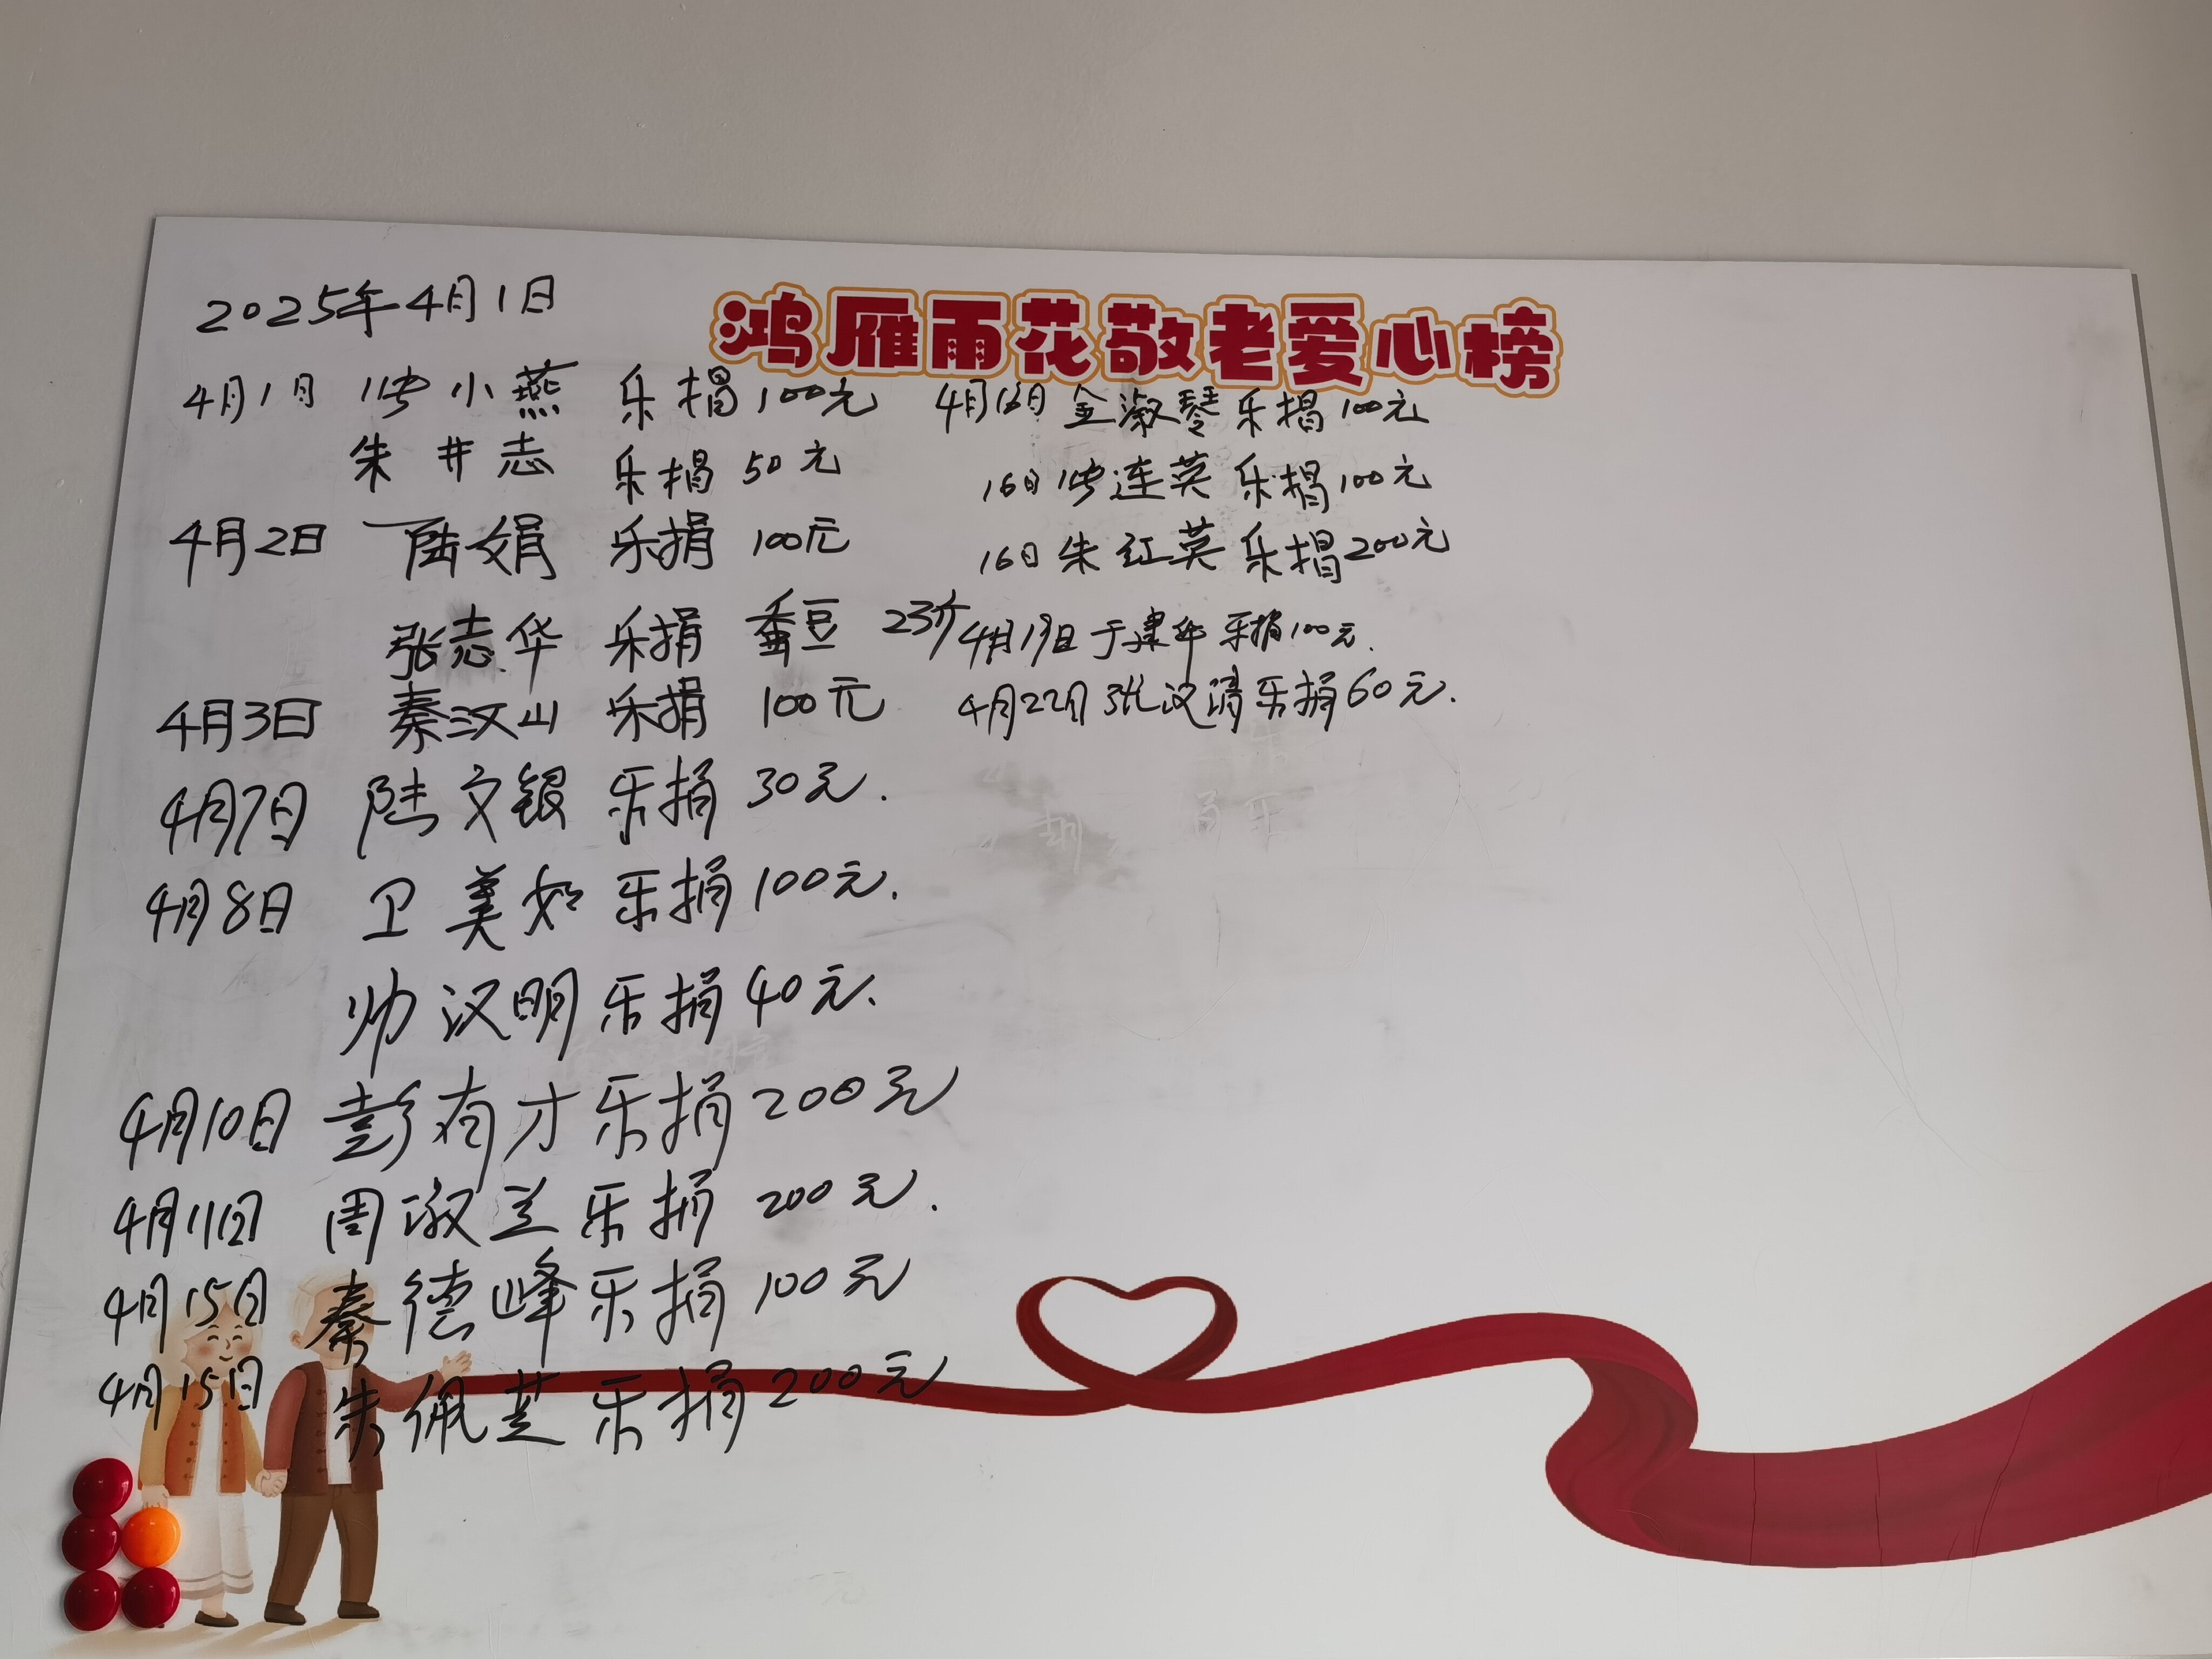 鸿雁雨花敬老爱心榜
2025年4月1日
4月1日 张小燕 乐捐100元
朱井志 乐捐50元
4月2日 陆娟 乐捐 100元
张志华 乐捐 蚕豆 23斤
4月3日 秦汉山 乐捐 100元
4月7日 陆文银 乐捐30元.
4月8日 卫美如 乐捐100元.
帅汉明 乐捐40元.
4月10日 彭有才乐捐200元
4月11日 周淑兰乐捐 200元.
4月15日 秦德峰乐捐 100元
4月15日 朱佩芝乐捐200元
4月16日 金淑琴乐捐100元
16日 张连英 乐捐100元
16日 朱红英 乐捐200元
4月19日 于建华 乐捐100元.
4月22日 张汉清乐捐60元.